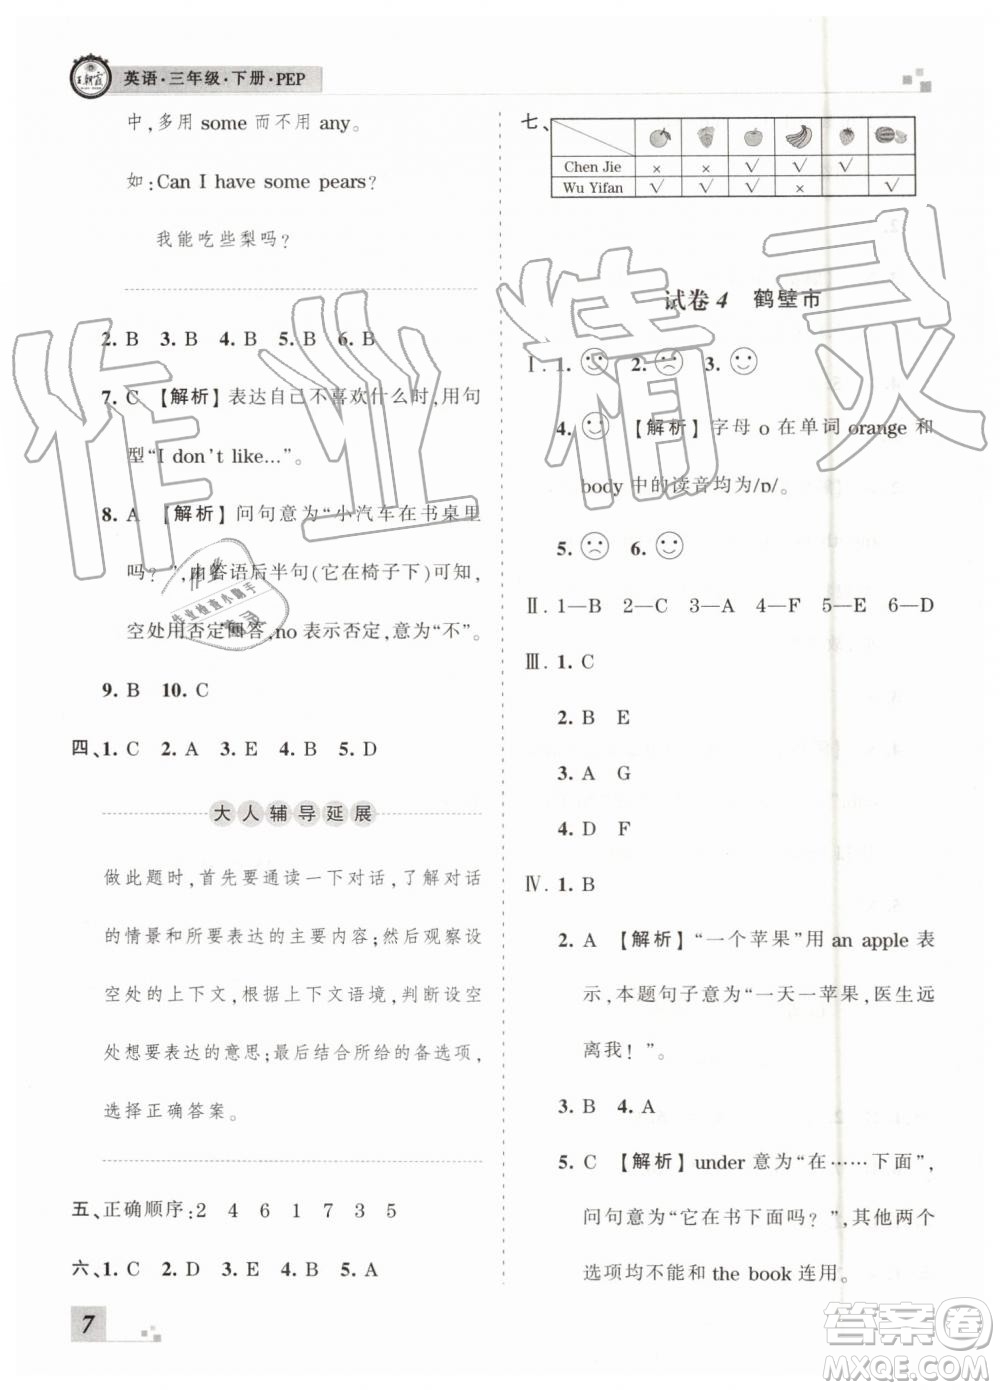 王朝霞
英语·三年级·下册·PEP
中,多用 some 而不用 any。
如:Can I have some pears?
我能吃些梨吗?
2. B 3. B 4. B 5. B 6. B
7. C 【解析】表达自己不喜欢什么时,用句
型“I don’t like...”。
8. A 【解析】问句意为“小汽车在书桌里
吗? ”,由答语后半句(它在椅子下)可知,
空处用否定回答,no 表示否定,意为“不”。
9. B 10. C
四、1. C 2. A 3. E 4. B 5. D
大人辅导延展
做此题时,首先要通读一下对话,了解对话
的情景和所要表达的主要内容;然后观察设
空处的上下文,根据上下文语境,判断设空
处想要表达的意思;最后结合所给的备选项,
选择正确答案。
五、正确顺序:2 4 6 1 7 3 5
六、1. C 2. D 3. E 4. B 5. A
7
七、
Chen Jie × × √ √ √
Wu Yifan √ √ √ × √
试卷 4 鹤壁市
Ⅰ. 1. 2. 3.
4. 【解析】字母 o 在单词 orange 和
body 中的读音均为/ɒ/。
5. 6.
Ⅱ. 1—B 2—C 3—A 4—F 5—E 6—D
Ⅲ. 1. C
2. B E
3. A G
4. D F
Ⅳ. 1. B
2. A 【解析】“一个苹果”用 an apple 表
示,本题句子意为“一天一苹果,医生远
离我! ”。
3. B 4. A
5. C 【解析】under 意为“在……下面”,
问句意为“它在书下面吗? ”,其他两个
选项均不能和 the book 连用。
作业精灵
作业检查小助手
答案圈
MXQE.COM